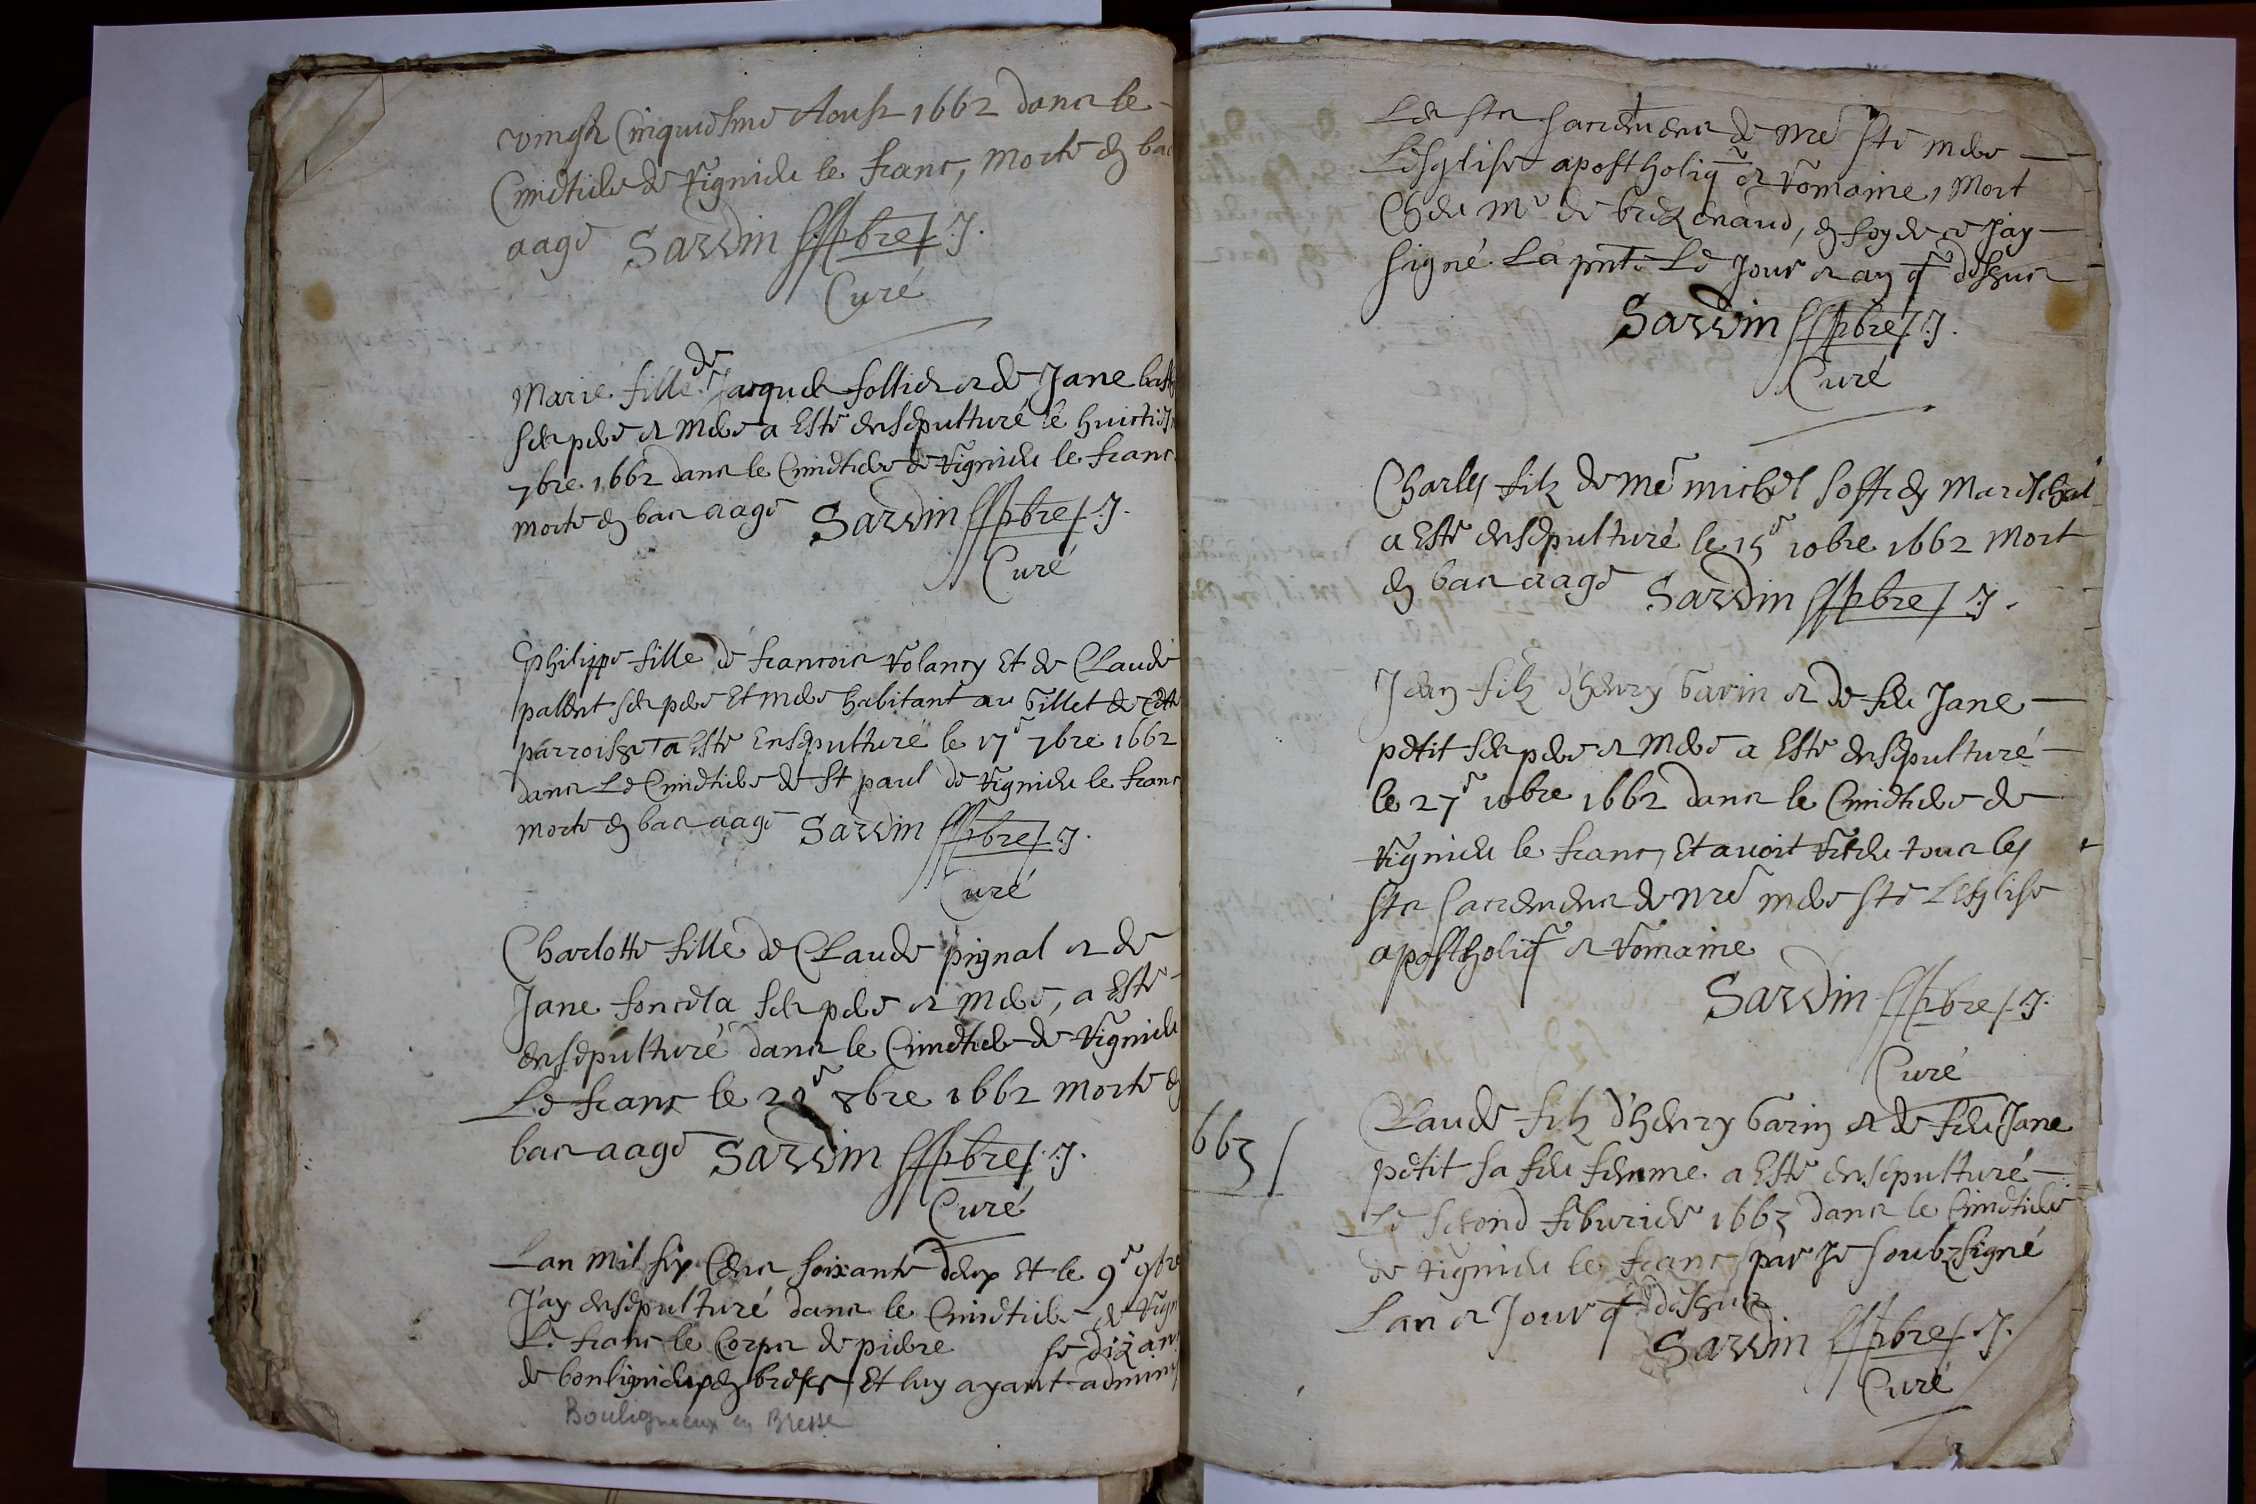 vingt Cinquiesme Aoust 1662 dans le
Cimetiere de Vignieu le franc, Morte en bas
aage Sardin pbre J.
Curé
Marie fille de Jacques sollier et de Jane
ses pere et Mere a Esté ensepulturé le huictie
7bre 1662 dans le Cimetiere de Vignieu le franc
morte en bas aage Sardin pbre J.
Curé
philippe fille de francois Volancy Et de Claude
pallent ses pere Et mere habitant au Villet de Cette
parroisse a Esté Ensepulturé le 17e 7bre 1662
dans Le Cimetiere de St paul de Vignieu le franc
morte en bas aage Sardin pbre J.
Curé
Charlotte fille de Claude pignal et de
Jane ses pere et mere, a Esté
ensepulturé dans le Cimetiere de Vignieu
Le franc le 8bre 1662 morte en
bas aage Sardin pbre J.
Curé
Lan mil six Cens soixante deux Et le 9e 9bre
J'ay ensepulturé dans le Cimetiere de Vign
Le franc le Corps de pierre se dizan
de bonlignieux en bresse, Et luy ayant admini
Bouligneux en Bresse
Les sts sacremens de nre ste mere
Lesglise apostholiq et Romaine, Mort
Chez Mr de, en foy de ce J'ay
signé La pnte Le Jour et an q dessus
Sardin pbre J.
Curé
Charles filz de Me michel Mareschal
a Esté ensepulturé le 15e 10bre 1662 Mort
en bas aage Sardin pbre J.
Jean filz d'henry Varin et de feu Jane
petit ses pere et Mere a Esté ensepulturé
le 27e 10bre 1662 dans le Cimetiere de
Vignieu le franc, Et avoit receu tous les
sts sacremens de nre mere ste Lesglise
apostholiq et Romaine
Sardin pbre J.
Curé
663
Claude filz d'henry Varin et de feu Jane
petit sa feu femme a Esté ensepulturé
Le second feburier 1663 dans le Cimetiere
de Vignieu le franc par Je soubzsigné
Lan et Jour q dessus
Sardin pbre J.
Curé